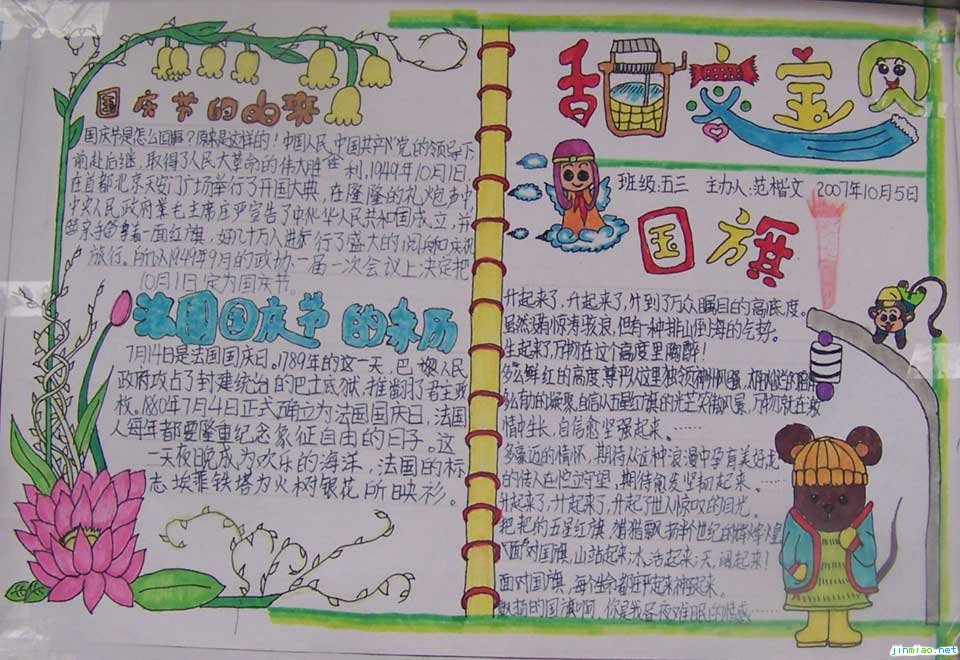 国庆节的由来
国庆节是怎么回事？原来是这样的！中国人民中国共产党的领导下
前赴后继，取得了人民大革命的伟大胜利，1949年10月1日
在首都北京天安门广场举行了开国大典，在隆隆的礼炮声中
中央人民政府 毛主席庄严宣告了中华人民共和国成立，并
着一面红旗，好几十万人进行了盛大的阅兵和庆祝
旅行。所以1949年9月的政协一届一次会议上决定把
10月1日定为国庆节。
法国国庆节的来历
7月14日是法国国庆日。1789年的这一天，巴黎人民
政府攻占了封建统治的巴士底狱，推翻了君主政
权。1880年7月4日正式确立为法国国庆日，法国
人每年都要隆重纪念象征自由的日子。这
一天夜晚成为欢乐的海洋，法国的标
志埃菲铁塔为火树银花所映衫。
甜蜜宝
班级：五三 主办人：范楷文 2007年10月5日
国旗
升起来了，升起来了，升到了万众瞩目的高底度。
虽然没有惊涛骇浪，但有一种排山倒海的气势。
生起来了，万物在这个高度里陶醉！
多么鲜红的高度，尊严从这里独领
自信从五星红旗的光芒 万物就在
情中生长，自信愈坚强起来。……
多邈远的情怀，期待从这种浪漫中孕育美好
的传人在伫立守望，期待愈发坚韧起来。……
升起来了，升起来了，升起了世人惊叹的目光。
把 的五星红旗，猎猎飘扬 半个世纪的辉煌
面对国旗，山站起来，水活起来，天阔起来！
面对国旗，每个生命都 起来
的国旗啊，你是我昼夜难眠的情感……
jinmiao.net